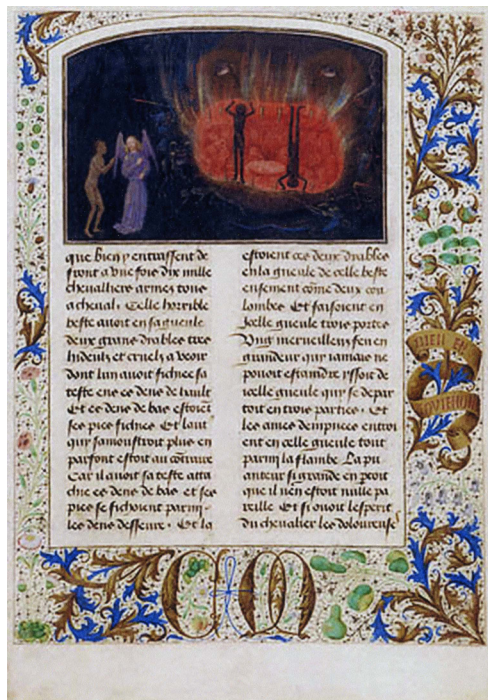 que bien y entraissent de
front a une fois dix mille
chevalliers armez tous
a cheval. Celle horrible
beste avoit en sa gueule
deux grans dyables tres
hideulx et cruelz a veoir
dont lun avoit fichiee sa
teste ens es dens de hault
Et es dens de bas estoiēt
ses piez fichies. Et laut̄
qui samoustroit plus en
parfont estoit au cōtraire
Car il avoit sa teste atta
chie es dens de bas et ses
piez se fichoient parmi
les dens desseure. Et la
estoient ces deux dyables
en la gueule de celle beste
ensement cōme deux cou
lombes. Et faisoient en
icelle gueule trois portes
Ung merveilleux feu en
grandeur qui iamais ne
pouoit estaindre yssoit de
icelle gueule qui se depar
toit en trois parties. Et
les ames dempnees entroi
ent en celle gueule tout
parmi la flambe. La pu
anteur si grande en yssoit
que il nen estoit nulle pa
reille. Et si ouoit lesperit
du chevalier les doloureuses
BIEN EN
CM